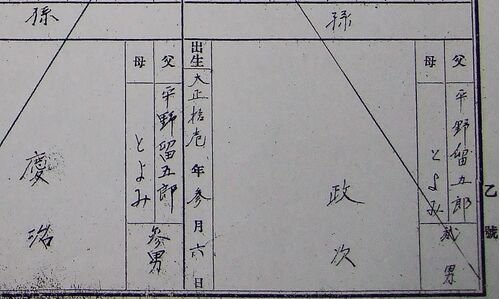 乙號
孫
父 平野留五郎 貳男
母 とよみ
政次
出生 大正拾壱年参月六日
孫
父 平野留五郎 参男
母 とよみ
慶治